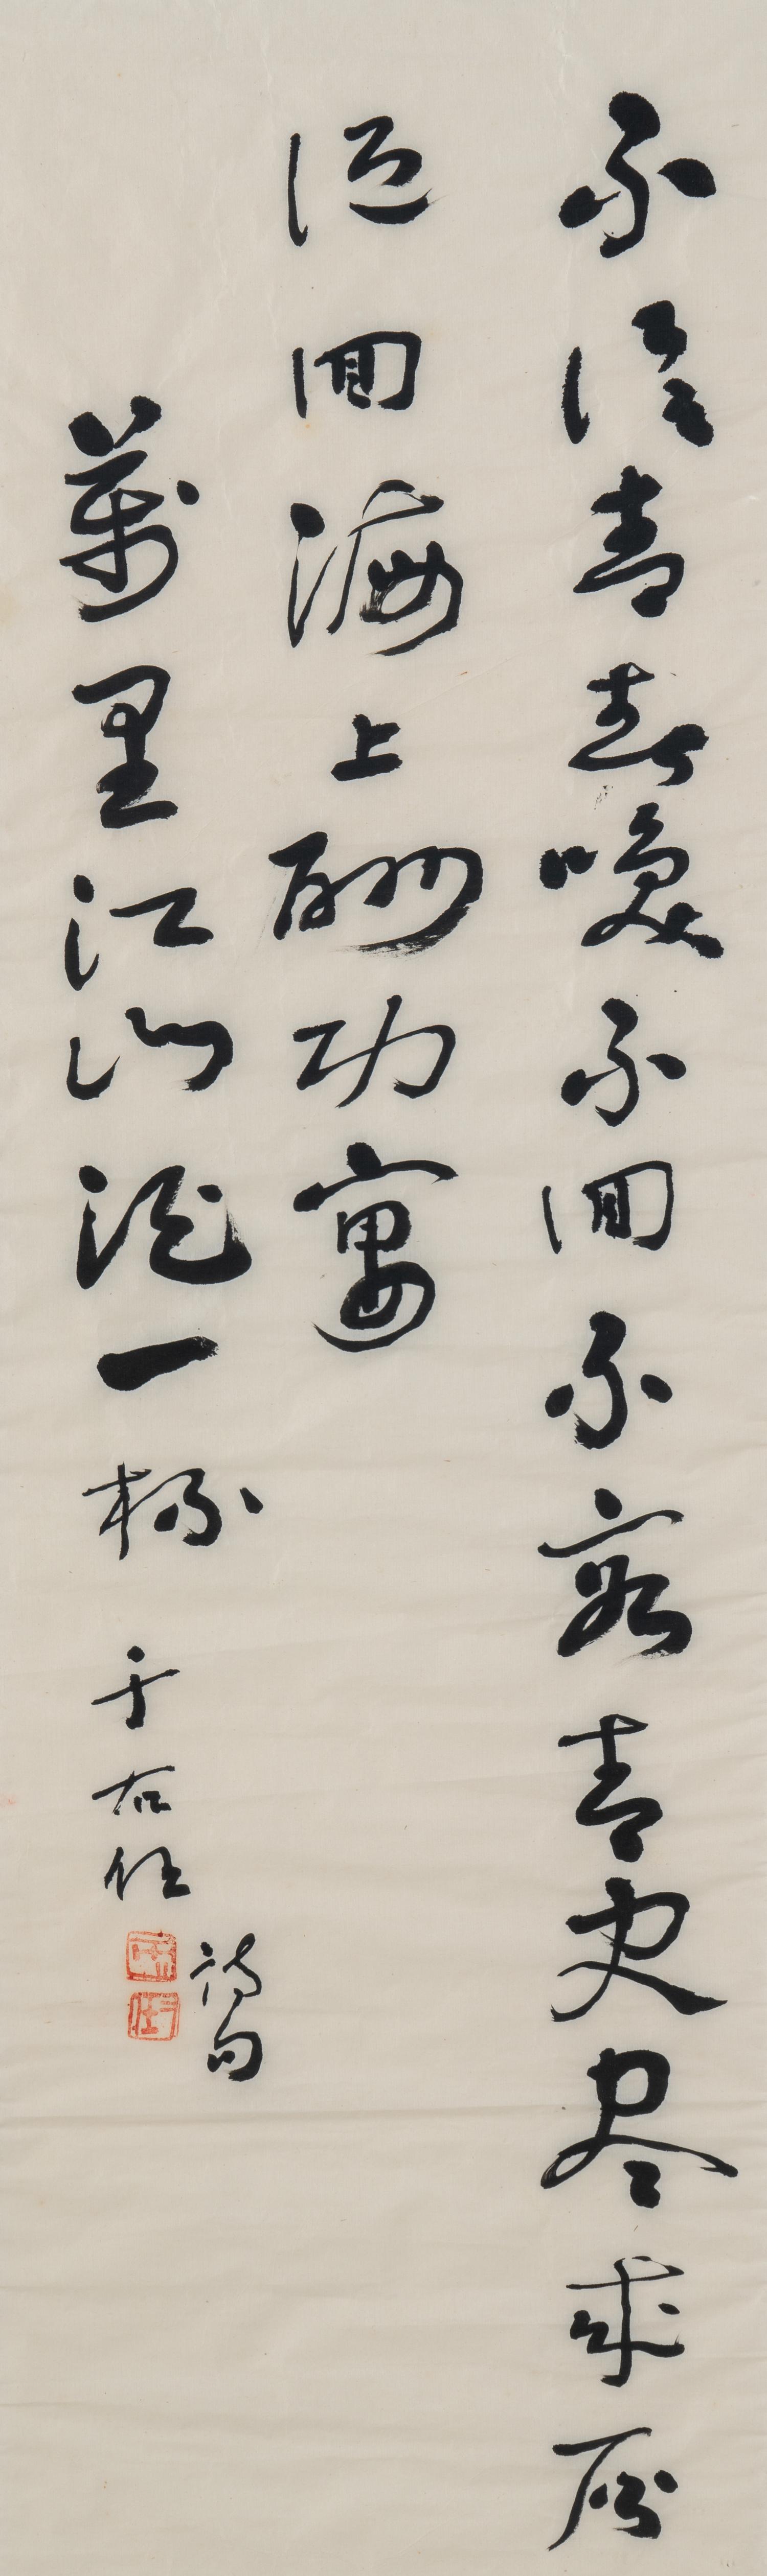 不信青春喚不回不容青史尽成灰
低回海上酬功宴
萬里江山酒一杯
于右任
詩句